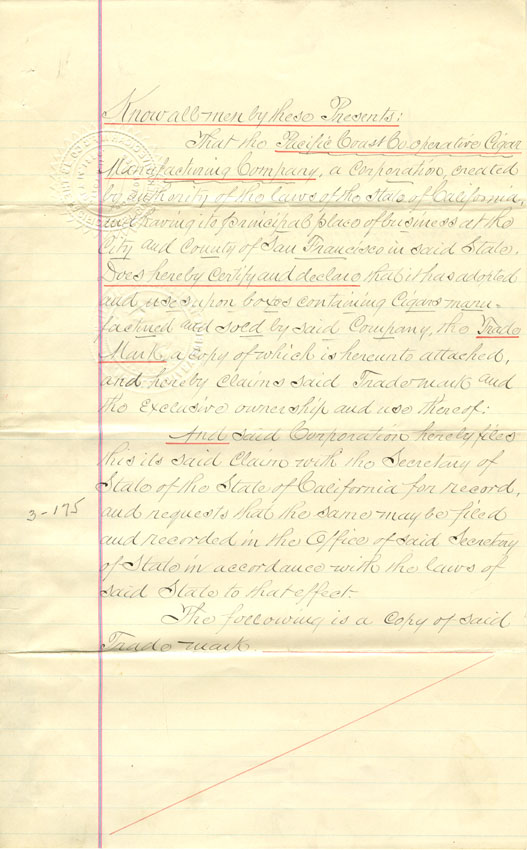 Know all men by these Presents:
That the Pacific Coast Cooperative Cigar
Manufacturing Company, a Corporation, created
by authority of the laws of the State of California,
and having its principal place of business at the
City and County of San Francisco in said State.
Does hereby Certify and declare that it has adopted
and uses upon boxes containing Cigars manu-
factured and sold by said Company, the Trade
Mark, a copy of which is hereunto attached,
and hereby claims said Trade mark and
the exclusive ownership and use thereof:
And said Corporation hereby files
this its said Claim with the Secretary of
State of the State of California for record,
3-175
and requests that the same may be filed
and recorded in the Office of said Secretary
of State in accordance with the laws of
said State to that effect-
The following is a copy of said
Trade mark.